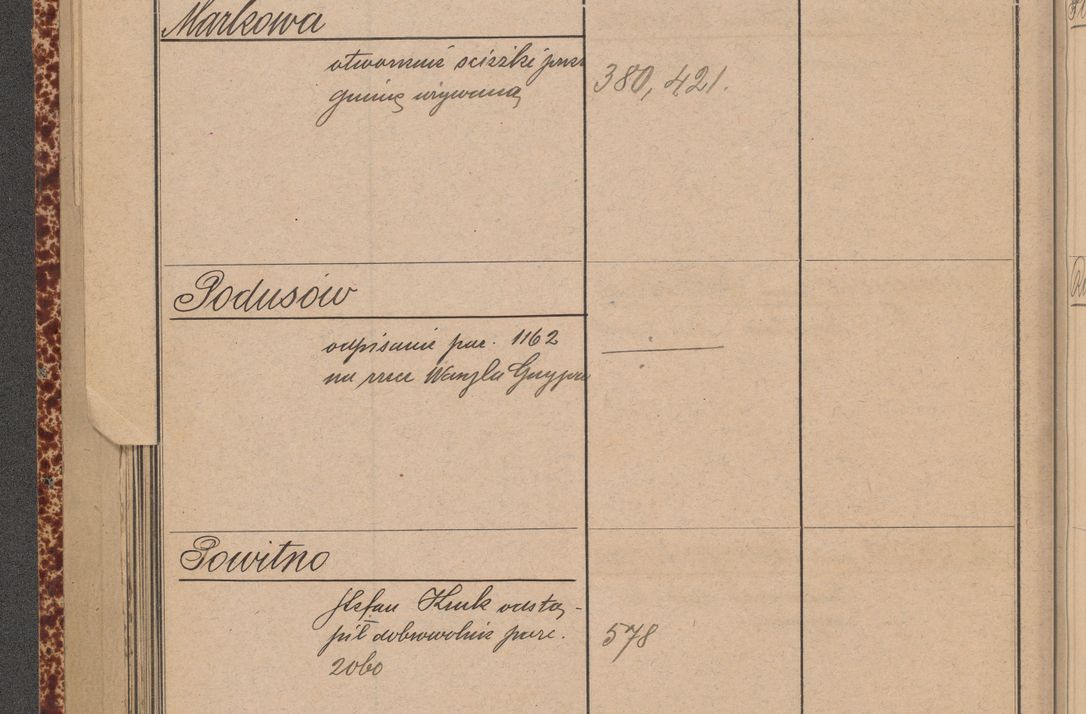 Markowa
otworzenie scieżki przez
gminę używaną
380, 421.
Podusów
odpisanie parc. 1162
na rzecz Wanzla
Powitno
Stefan Kruk odstą-
pił dobrowolnie parc.
2060
578